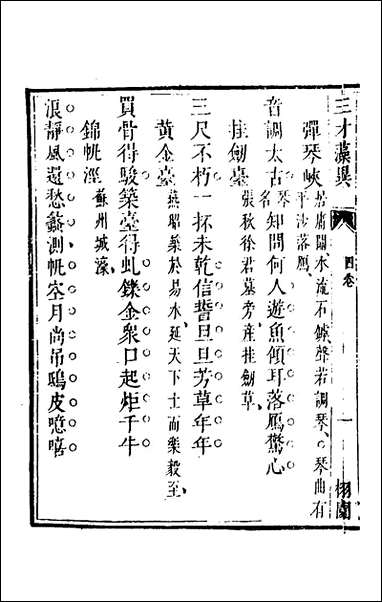 三才藻異
四卷
一
栩園
彈琴峽 居庸關水流石罅聲若調琴琴曲有
平沙落鴈
音調太古 琴名 知問何人遊魚傾耳落鴈驚心
挂劍臺 張秋徐君墓旁産挂劍草
三尺不朽一抔未乾信誓旦旦芳草年年
黄金臺 燕昭築於易水延天下士而樂毅至
買骨得駿築臺得虬鑠金衆口起炬千牛
錦帆涇 蘇州城濠
浪靜風還愁蠡測帆空月尚吊鴟皮噫嘻